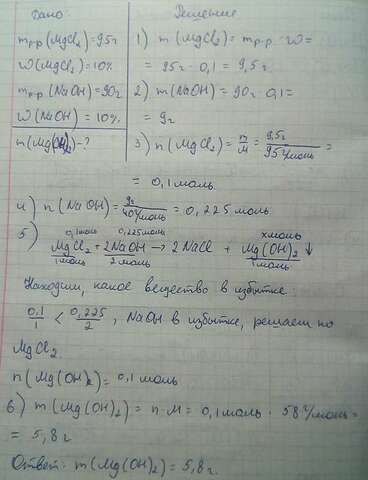 Дано:
Решение
m р-р (MgCl₂) = 95г
W(MgCl₂) = 10%
m р-р (NaOH) = 90г
W(NaOH) = 10%
m(Mg(OH)₂) - ?
1) m(MgCl₂) = m р-р · W =
= 95г · 0,1 = 9,5г
2) m(NaOH) = 90г · 0,1 =
= 9г
3) n(MgCl₂) = m/M = 9,5г / 95г/моль =
= 0,1 моль
4) n(NaOH) = 9г / 40г/моль = 0,225 моль
5) 0,1моль 0,225моль xмоль
MgCl₂ + 2NaOH → 2NaCl + Mg(OH)₂ ↓
1моль 2моль 1моль
Находим, какое вещество в избытке
0,1/1 < 0,225/2, NaOH в избытке, решаем по
MgCl₂.
n(Mg(OH)₂) = 0,1 моль
6) m(Mg(OH)₂) = n · M = 0,1моль · 58г/моль =
= 5,8г
Ответ: m(Mg(OH)₂) = 5,8г.